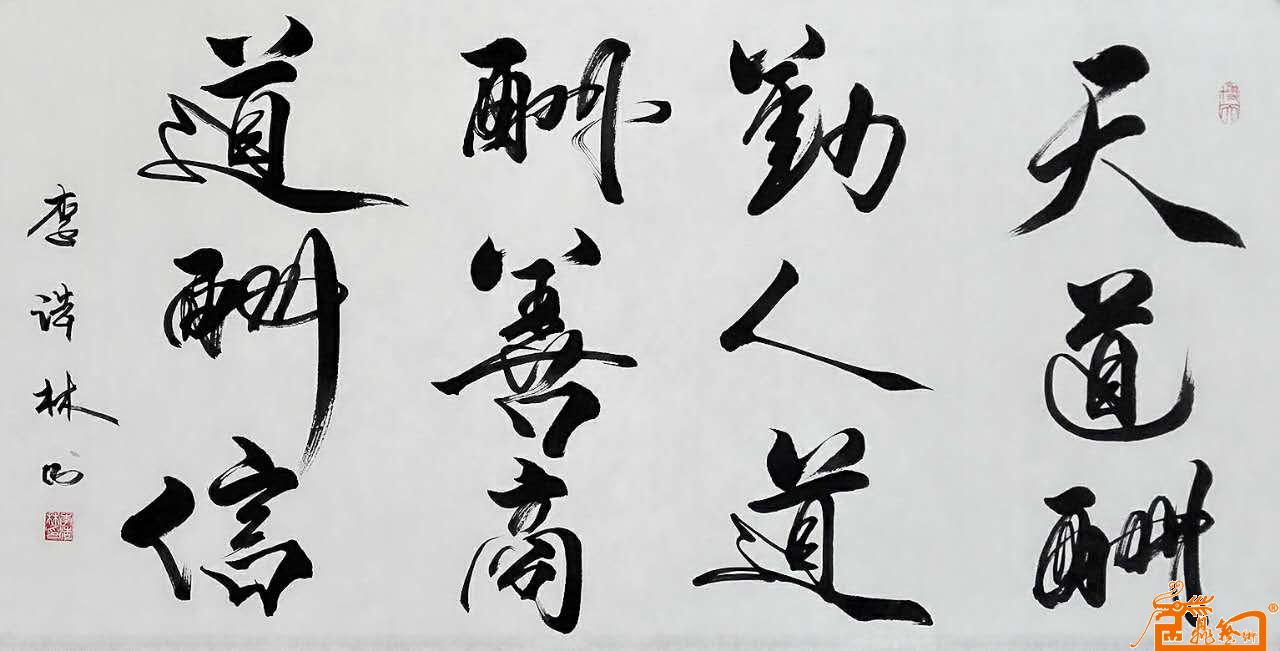 天道酬
勤人道
酬善商
道酬信
林